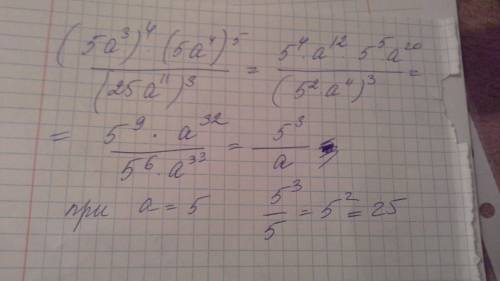 (5a³)⁴ · (5a⁴)⁵ / (25a¹¹)³ = 5⁴ · a¹² 5⁵ · a²⁰ / (5² · a⁴)³ =
= 5⁹ · a³² / 5⁶ · a³³ = 5³ / a
при a = 5 5³ / 5 = 5² = 25